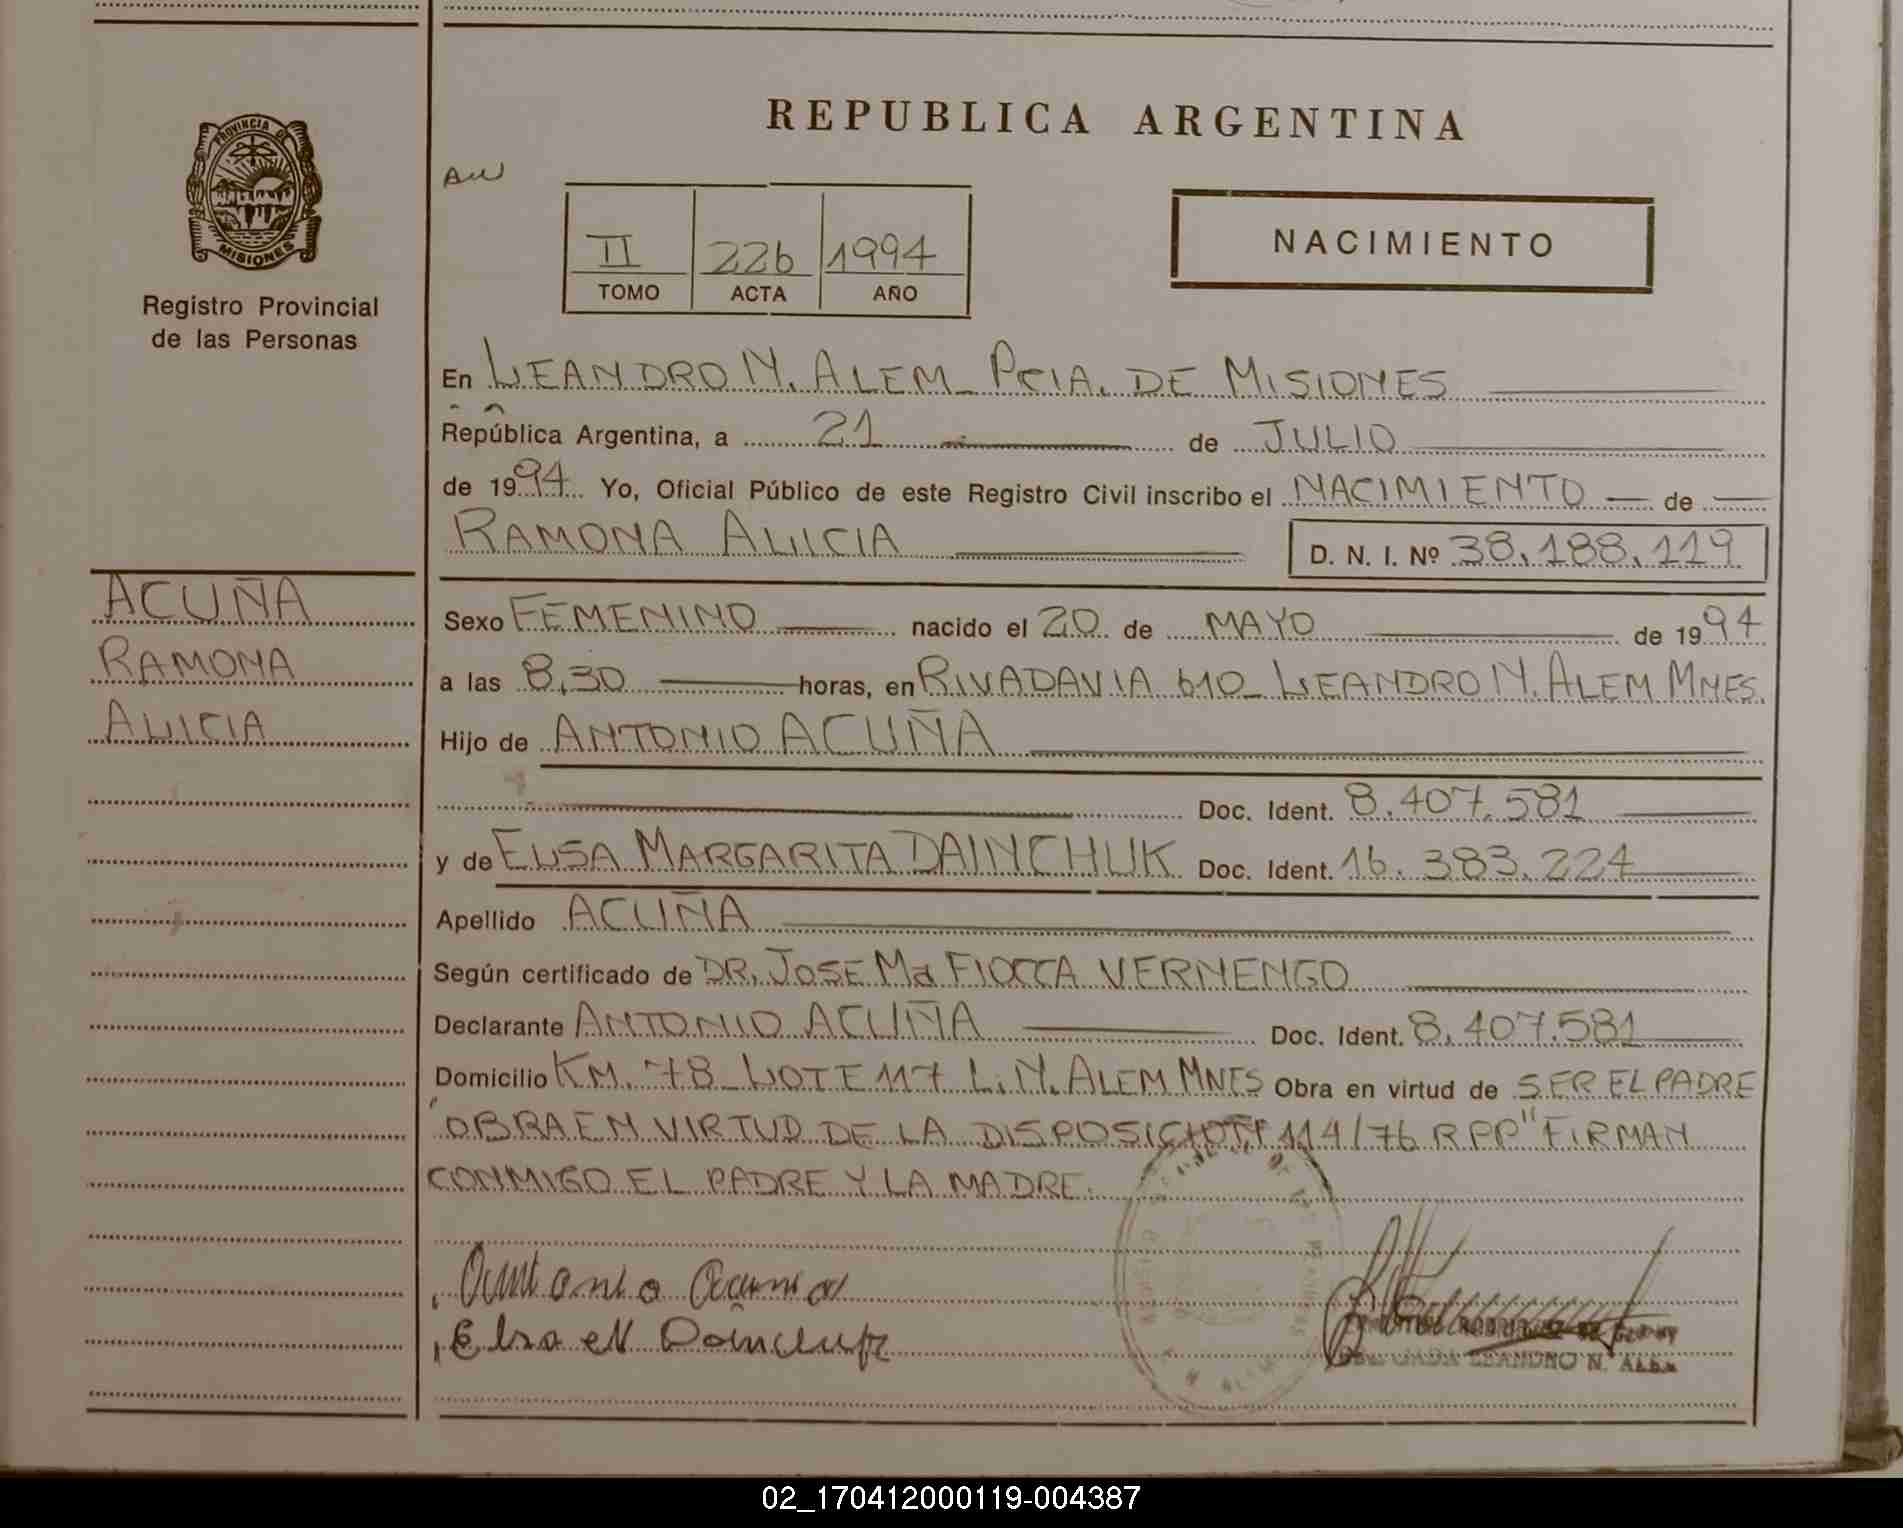 REPUBLICA ARGENTINA
PROVINCIA DE
MISIONES
Registro Provincial
de las Personas
II 226 1994
TOMO ACTA AÑO
NACIMIENTO
En LEANDRO N. ALEM - PCIA. DE MISIONES
República Argentina, a 21 de JULIO
de 1994 Yo, Oficial Público de este Registro Civil inscribo el NACIMIENTO de
RAMONA ALICIA D. N. I. Nº 38.188.119
ACUÑA
RAMONA
ALICIA
Sexo FEMENINO nacido el 20 de MAYO de 1994
a las 8,30 horas, en RIVADAVIA 610 - LEANDRO N. ALEM MNES.
Hijo de ANTONIO ACUÑA
Doc. Ident. 8.407.581
y de ELSA MARGARITA DAINCHUK Doc. Ident. 16.383.224
Apellido ACUÑA
Según certificado de DR. JOSE Mª FIOCCA VERNENGO
Declarante ANTONIO ACUÑA Doc. Ident. 8.407.581
Domicilio KM. 78 - LOTE 117 L.N. ALEM MNES Obra en virtud de SER EL PADRE
"OBRA EN VIRTUD DE LA DISPOSICION 114/76 RPP" FIRMAN
CONMIGO EL PADRE Y LA MADRE.
Antonio Acuña
Elsa M Dainchuk
LEANDRO N. ALEM
02_170412000119-004387